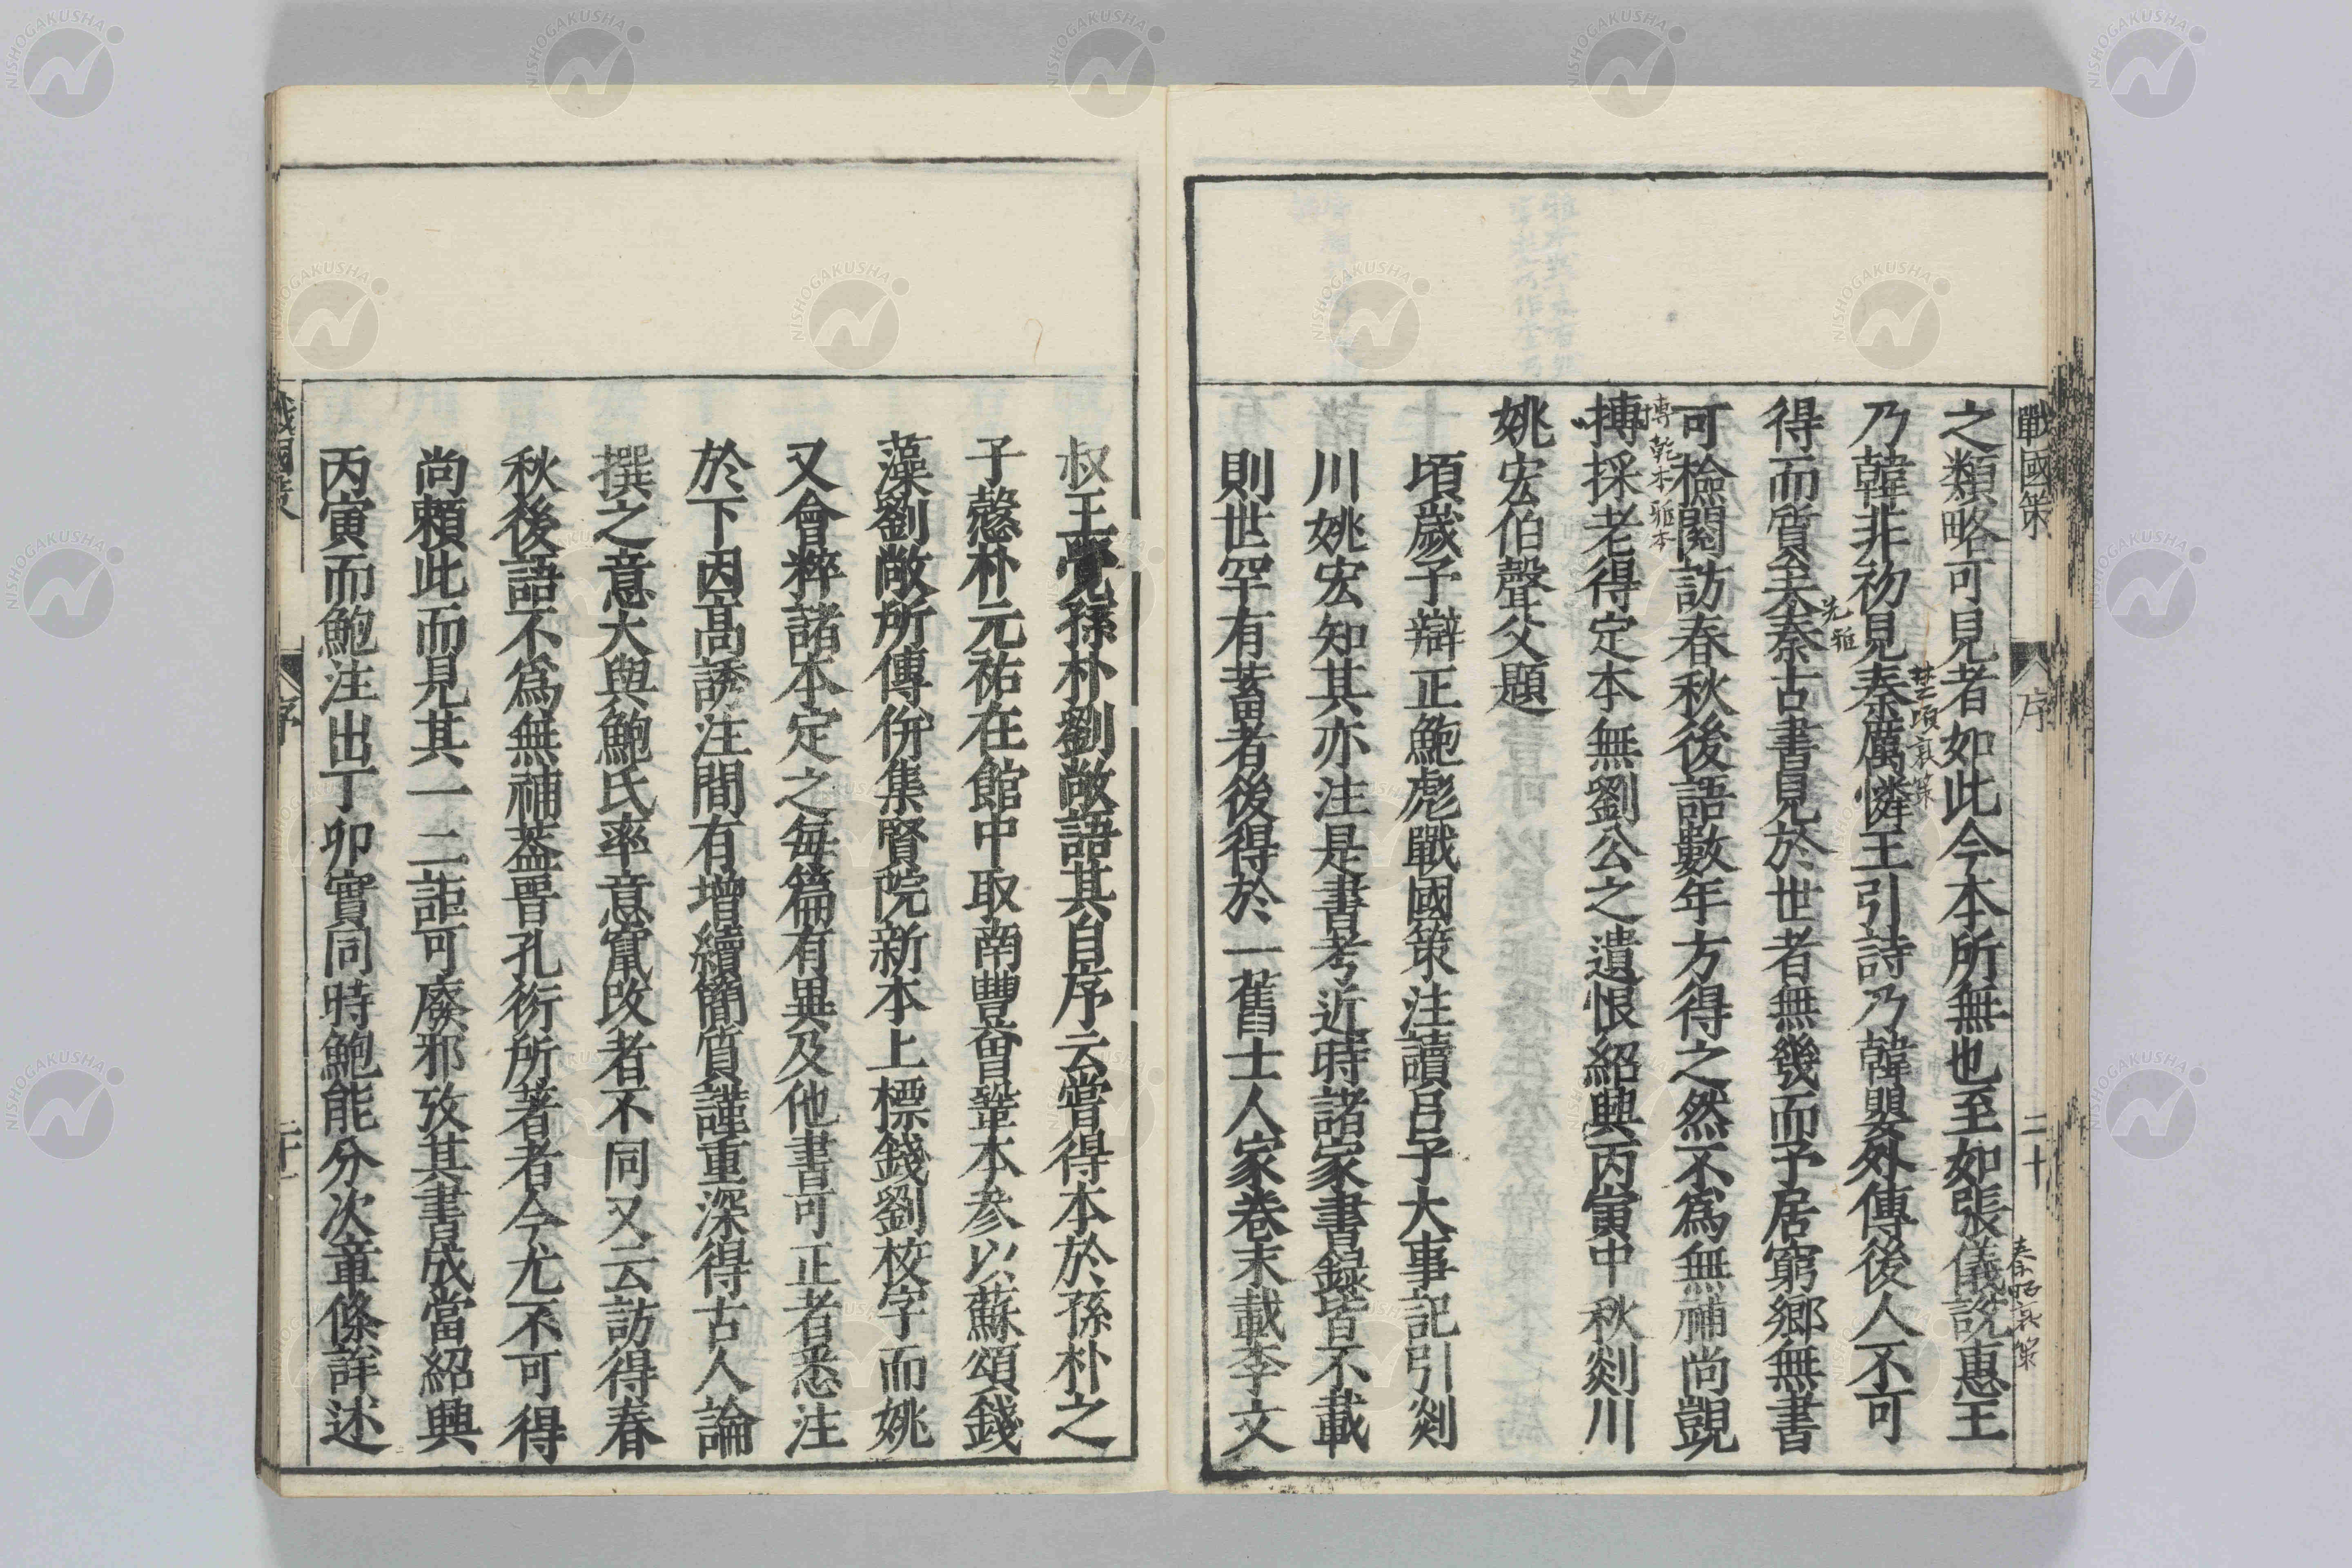 戰國策
序
二十
之類略可見者如此今本所無也至如張儀說惠王
秦昭襄策
乃韓非初見秦厲憐王引詩乃韓嬰外傳後人不可
楚頃襄策
得而質矣夫秦古書見於世者無幾而予居窮鄉無書
先雅
可檢閱訪春秋後語數年方得之然不爲無補尚覬
博乾本雅本
摶採老得定本無劉公之遺恨紹興丙寅中秋剡川
姚宏伯聲父題
頃歲予辯正鮑彪戰國策注讀呂子大事記引剡
川姚宏知其亦注是書考近時諸家書錄皆不載
則世罕有蓄者後得於一舊士人家卷末載李文
叔王覺孫朴劉敞語其自序云嘗得本於孫朴之
子愨朴元祐在館中取南豐曾鞏本參以蘇頌錢
藻劉敞所傳併集賢院新本上標錢劉校字而姚
又會粹諸本定之每篇有異及他書可正者悉注
於下因高誘注間有增續簡質謹重深得古人論
撰之意大與鮑氏率意竄改者不同又云訪得春
秋後語不爲無補葢晋孔衍所著者今尤不可得
尚賴此而見其一二詎可廢邪攷其書成當紹興
丙寅而鮑注出丁卯實同時鮑能分次章條詳述
序